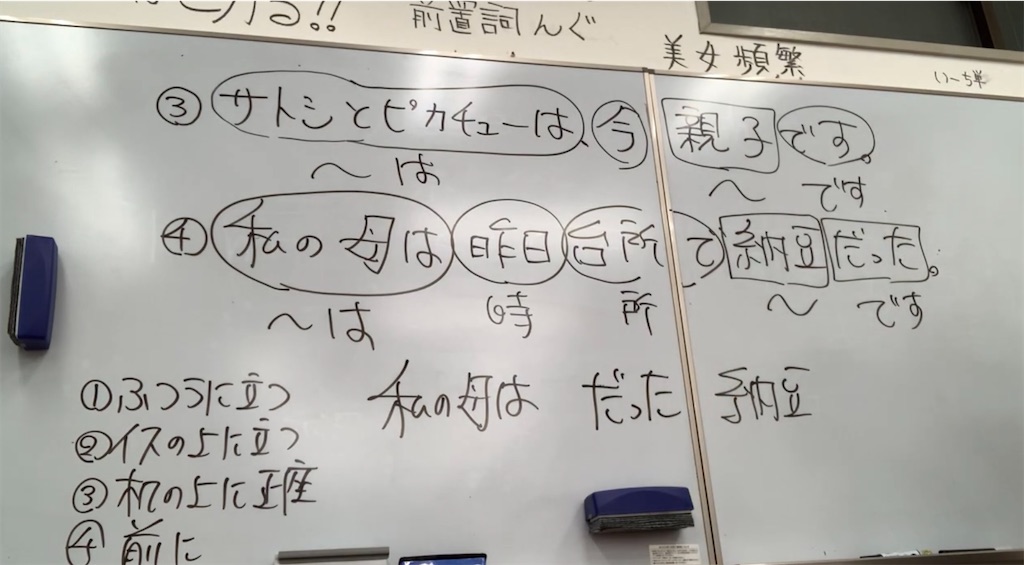 前置詞んぐ
美女頻繁
③サトシとピカチューは、今 親子です。
〜は 〜 です
④私の母は昨日台所で納豆だった。
〜は 時 所 〜 です
私の母は だった 納豆
①ふつうに立つ
②イスの上に立つ
③机の上に正座
④前に